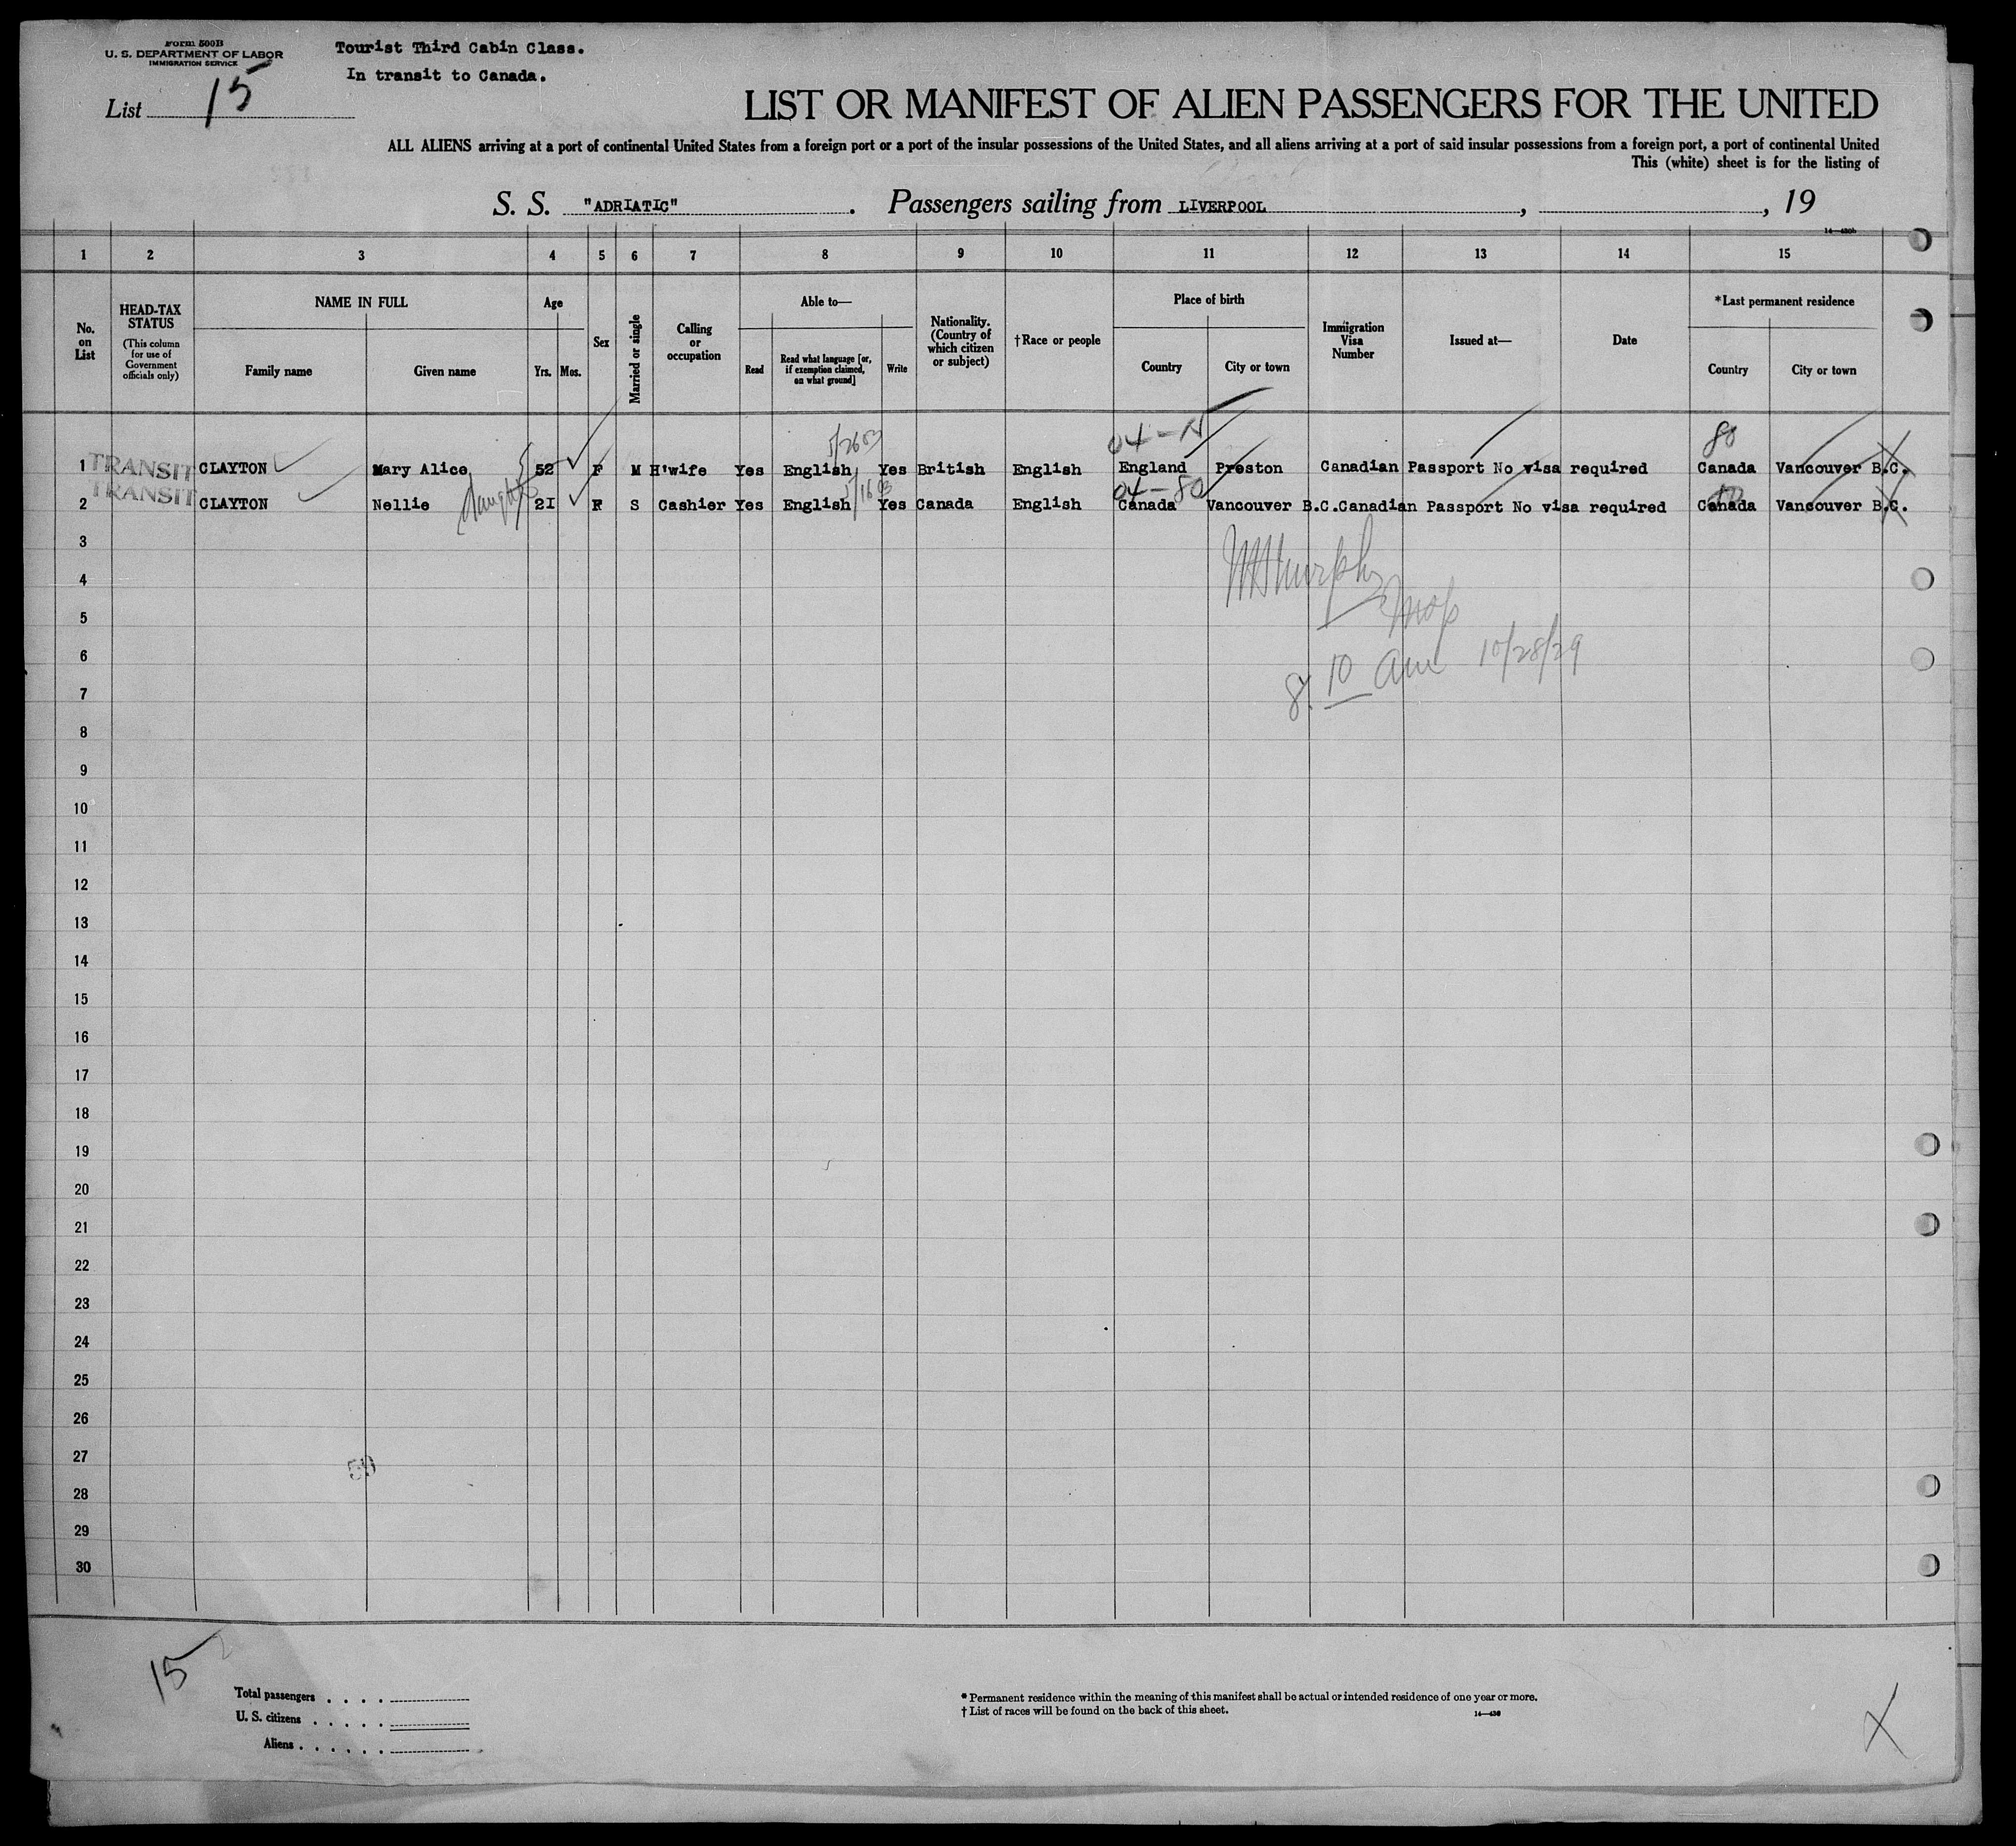 Form 500B
U. S. DEPARTMENT OF LABOR
IMMIGRATION SERVICE
Tourist Third Cabin Class.
In transit to Canada.
List 15
LIST OR MANIFEST OF ALIEN PASSENGERS FOR THE UNITED
ALL ALIENS arriving at a port of continental United States from a foreign port or a port of the insular possessions of the United States, and all aliens arriving at a port of said insular possessions from a foreign port, a port of continental United
This (white) sheet is for the listing of
S. S. "ADRIATIC". Passengers sailing from LIVERPOOL, , 19
1 2 3 4 5 6 7 8 9 10 11 12 13 14 15
No. on List
HEAD-TAX STATUS
(This column for use of Government officials only)
NAME IN FULL
Family name Given name
Age
Yrs. Mos.
Sex
Married or single
Calling or occupation
Able to—
Read Read what language [or, if exemption claimed, on what ground] Write
Nationality. (Country of which citizen or subject)
†Race or people
Place of birth
Country City or town
Immigration Visa Number
Issued at—
Date
*Last permanent residence
Country City or town
04-N 80
1 TRANSIT CLAYTON Mary Alice 52 F M H'wife Yes English Yes British English England Preston Canadian Passport No visa required Canada Vancouver B.C.
04-80
2 TRANSIT CLAYTON Nellie daughter 21 F S Cashier Yes English Yes Canada English Canada Vancouver B.C. Canadian Passport No visa required Canada Vancouver B.C.
3
4
5
6
8.10 am 10/28/29
7
8
9
10
11
12
13
14
15
16
17
18
19
20
21
22
23
24
25
26
27
28
29
30
15
Total passengers
U. S. citizens
Aliens
* Permanent residence within the meaning of this manifest shall be actual or intended residence of one year or more.
† List of races will be found on the back of this sheet.
14—430